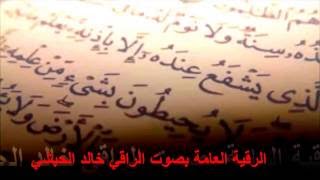 سِنَةٌ وَلَا نَوْمٌ لَّهُ
لَّذِي يَشْفَعُ عِندَهُ إِلَّا بِإِذْنِهِ يَعْلَمُ
وَلَا يُحِيطُونَ بِشَيْءٍ مِّنْ عِلْمِهِ
الْأَرْضَ وَلَا
الرقية العامة بصوت الراقي خالد الحبشي